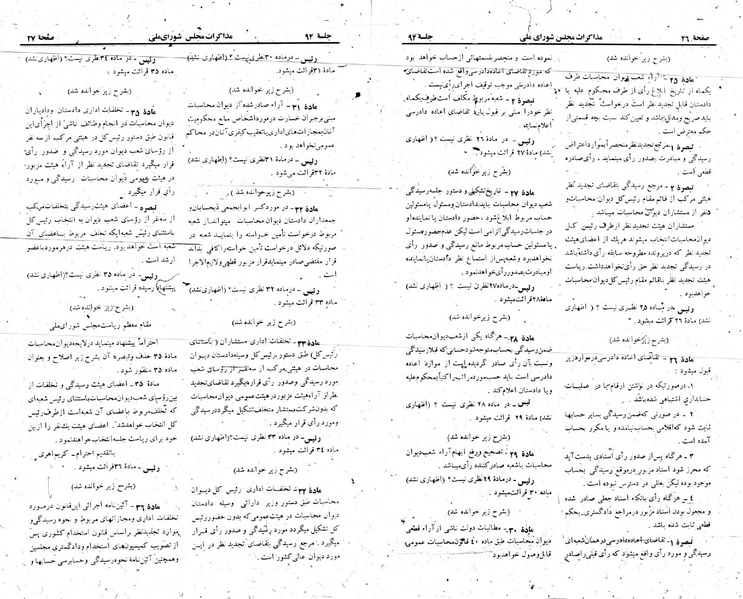 صفحهٔ ۲۶
مذاکرات مجلس شورای ملی
جلسهٔ ۹۴
(بشرح زیر خوانده شد)
مادهٔ ۲۵ - آراء شعب دیوان محاسبات ظرف
یکماه از تاریخ ابلاغ رأی از طرف محکوم علیه یا
دادستان قابل تجدید نظر است درخواست تجدید نظر
باید صریح ومدلل باشد و تعیین کند نسبت بچه قسمتی از
حکم معترض است.
تبصرهٔ ۱ - مرجع تجدید نظر منحصراً بموارد اعتراض
رسیدگی و مبادرت بصدور رأی مینماید، رأی صادره
قطعی است.
تبصره ۲ - مرجع رسیدگی بتقاضای تجدید نظر
هیئتی مرکب از قائم مقام رئیس کل دیوان محاسبات و
۵ نفر از مستشاران دیوان محاسبات میباشد.
مستشاران هیئت تجدید نظر ازطرف رئیس کل
دیوان محاسبات انتخاب میشوند هریک از اعضای هیئت
تجدید نظر که درپرونده مطروحه سابقه رأی داشته باشد
در رسیدگی تجدید نظر حق رأی نخواهد داشت. ریاست
هیئت تجدید نظر باقائم مقام رئیس کل دیوان محاسبات
خواهد بود.
رئیس - در ماده ۲۵ نظری نیست ؟ (اظهاری
نشد) ماده ۲۶ قرائت میشود.
(بشرح زیر خوانده شد)
مادهٔ ۲۶ - تقاضای اعاده دادرسی درموارد زیر
قبول میشود :
۱ - درصورتیکه در نوشتن ارقام یا در عملیات
حسابداری اشتباهی شده باشد.
۲ - در صورتی که ضمن رسیدگی بسایر حسابها
ثابت شود که اقلامی بحساب نیامده و یا مکرر بحساب
آمده است.
۳ - هرگاه پس از صدور رأی اسنادی بدست آید
که محرز شود اسناد مزبور درموقع رسیدگی بحساب
موجود بوده لیکن بعللی در دسترس نبوده است.
۴ - هرگاه رأی باتکاء اسناد جعلی صادر شده
و مجعول بودن اسناد مزبور در مراجع دادگستری بحکم
قطعی ثابت شده باشد.
تبصره ۱ - تقاضای اعاده دادرسی درهمان شعبه‌ای
رسیدگی و مورد رأی واقع میشود که رأی قبلی را صادر
نموده است و منحصر بقسمتهائی از حساب خواهد بود
که مورد تقاضای اعاده دادرسی واقع شده است تقاضای
اعاده دادرسی موجب توقیف اجرای رأی نیست.
تبصره ۲ - شعبه مربوط مکلف است ظرف یکماه
نظر خود را مبنی بر قبول یا رد تقاضای اعاده دادرسی
اعلام نماید.
رئیس - در ماده ۲۶ نظری نیست ؟ (اظهاری
نشد) ماده ۲۷ قرائت میشود.
(بشرح زیر خوانده شد)
مادهٔ ۲۷ - تاریخ تشکیل و دستور جلسه رسیدگی
شعب دیوان محاسبات باید بدادستان و مسئول یا مسئولین
حساب مربوط ابلاغ شود. حضور دادستان یا نماینده او
در جلسات رسیدگی الزامی است لیکن عدم حضور مسئول
یا مسئولین حساب مربوط مانع رسیدگی و صدور رأی
نخواهد بود و شعبه پس از استماع نظر دادستان یا نماینده
او مبادرت بصدور رأی خواهد نمود.
رئیس - در ماده ۲۷ نظری نیست ؟ (اظهاری نشد)
ماده ۲۸ قرائت میشود.
(بشرح زیر خوانده شد)
مادهٔ ۲۸ - هرگاه یکی از شعب دیوان محاسبات
ضمن رسیدگی بحساب متوجه شود حسابی که قبلا رسیدگی
و نسبت بآن رأی صادر گردیده است از موارد اعاده
دادرسی است باید حسب مورد مراتب را کتباً بمحکوم علیه
و یا دادستان اعلام کند.
رئیس - در ماده ۲۸ نظری نیست ؟ (اظهاری
نشد) ماده ۲۹ قرائت میشود.
(بشرح زیر خوانده شد)
مادهٔ ۲۹ - تصحیح و رفع ابهام آراء شعب دیوان
محاسبات باشعبه صادر کننده رأی میباشد.
رئیس - در ماده ۲۹ نظری نیست ؟ (اظهاری نشد)
ماده ۳۰ قرائت میشود.
(بشرح زیر خوانده شد)
مادهٔ ۳۰ - مطالبات دولت ناشی از آراء قطعی
دیوان محاسبات طبق ماده ۴۰ قانون محاسبات عمومی
قابل وصول خواهد بود.
جلسهٔ ۹۴
مذاکرات مجلس شورای ملی
صفحهٔ ۲۷
رئیس - درماده ۳۰ نظری نیست ؟ (اظهاری نشد)
مادهٔ ۳۱ قرائت میشود.
(بشرح زیر خوانده شد)
مادهٔ ۳۱ - آراء صادر شده از دیوان محاسبات
مبنی بر جبران خسارت در مورد اشخاص مانع محکومیت
آنان بمجازات‌های اداری یا تعقیب کیفری آنان در محاکم
عمومی نخواهد بود.
رئیس - در ماده ۳۱ نظری نیست ؟ (اظهاری نشد)
مادهٔ ۳۲ قرائت می‌شود.
(بشرح زیر خوانده شد)
مادهٔ ۳۲ - در مورد کسر ابواجمعی ذیحسابان و
جمعداران دادستان دیوان محاسبات میتواند از شعبه
مربوط درخواست تأمین خواسته را بنماید شعبه در
صورتیکه دلائل درخواست تأمین خواسته را کافی بداند
قرار مقتضی صادر مینماید قرار مزبور قطعی و لازم الاجرا
است.
رئیس - در ماده ۳۲ نظری نیست ؟ (اظهاری نشد)
ماده ۳۳ قرائت میشود.
(بشرح زیر خوانده شد)
مادهٔ ۳۳ - تخلفات اداری مستشاران (باستثنای
رئیس کل) طبق دستور رئیس کل وسیله دادستان دیوان
محاسبات در هیئتی مرکب از سه نفر از رؤسای شعب
مورد رسیدگی وصدور رأی قرار میگیرد تقاضای تجدید
نظر از آراء هیئت مزبور در هیئت عمومی دیوان محاسبات
که بدون شرکت مستشار متخلف تشکیل میگردد رسیدگی
و مورد رأی قرار میگیرد.
رئیس - در ماده ۳۳ نظری نیست ؟ (اظهاری نشد)
ماده ۳۴ قرائت میشود.
(بشرح زیر خوانده شد)
مادهٔ ۳۴ - تخلفات اداری رئیس کل دیوان
محاسبات طبق دستور وزیر دارائی وسیله دادستان
دیوان محاسبات در هیئت عمومی که بدون حضور رئیس
کل تشکیل میگردد مورد رسیدگی و صدور رأی قرار
میگیرد. مرجع رسیدگی بتقاضای تجدید نظر در این
مورد دیوان عالی کشور است.
رئیس - در ماده ۳۴ نظری نیست ؟ (اظهاری نشد)
ماده ۳۵ قرائت میشود.
(بشرح زیر خوانده شد)
مادهٔ ۳۵ - تخلفات اداری دادستان و دادیاران
دیوان محاسبات در انجام وظائف ناشی از اجرای این
قانون طبق دستور رئیس کل در هیئتی مرکب از سه نفر
از رؤسای شعب دیوان مورد رسیدگی و صدور رأی
قرار میگیرد تقاضای تجدید نظر از آراء هیئت مزبور
در هیئت عمومی دیوان محاسبات رسیدگی و مورد
رأی قرار میگیرد.
تبصره - اعضای هیئت رسیدگی بتخلفات مرکب
از سه نفر از رؤسای شعب دیوان به انتخاب رئیس کل
باستثنای رئیس شعبه ایکه تخلف مربوط باعضای آن
شعبه است خواهد بود. ریاست هیئت در هر مورد با عضو
ارشد است.
رئیس - در ماده ۳۵ نظری نیست ؟ (اظهاری نشد)
پیشنهادی رسیده قرائت میشود.
(بشرح زیر خوانده شد)
مقام معظم ریاست مجلس شورای ملی
احتراماً پیشنهاد مینماید در لایحه دیوان محاسبات
ماده ۳۵ حذف وتبصره آن بشرح زیر اصلاح و بعنوان
ماده ۳۵ منظور شود.
ماده ۳۵ - اعضای هیئت رسیدگی و تخلفات از
بین رؤسای شعب دیوان محاسبات باستثنای رئیس شعبه‌ای
که تخلف مربوط باعضای آن شعبه است ازطرف رئیس
کل انتخاب خواهند شد. اعضای هیئت یک نفر را از بین
خود برای ریاست جلسه انتخاب خواهند نمود.
باتقدیم احترام - کریم اهری
رئیس - ماده ۳۶ قرائت میشود.
(بشرح زیر خوانده شد)
مادهٔ ۳۶ - آئین‌نامه اجرائی این قانون در مورد
تخلفات اداری و مجازاتهای مربوط و نحوه رسیدگی و
موارد تجدید نظر براساس قانون استخدام کشوری پس
از تصویب کمیسیون‌های استخدام و دادگستری مجلسین
وهمچنین آئین‌نامه نحوه رسیدگی و حسابرسی حسابها و